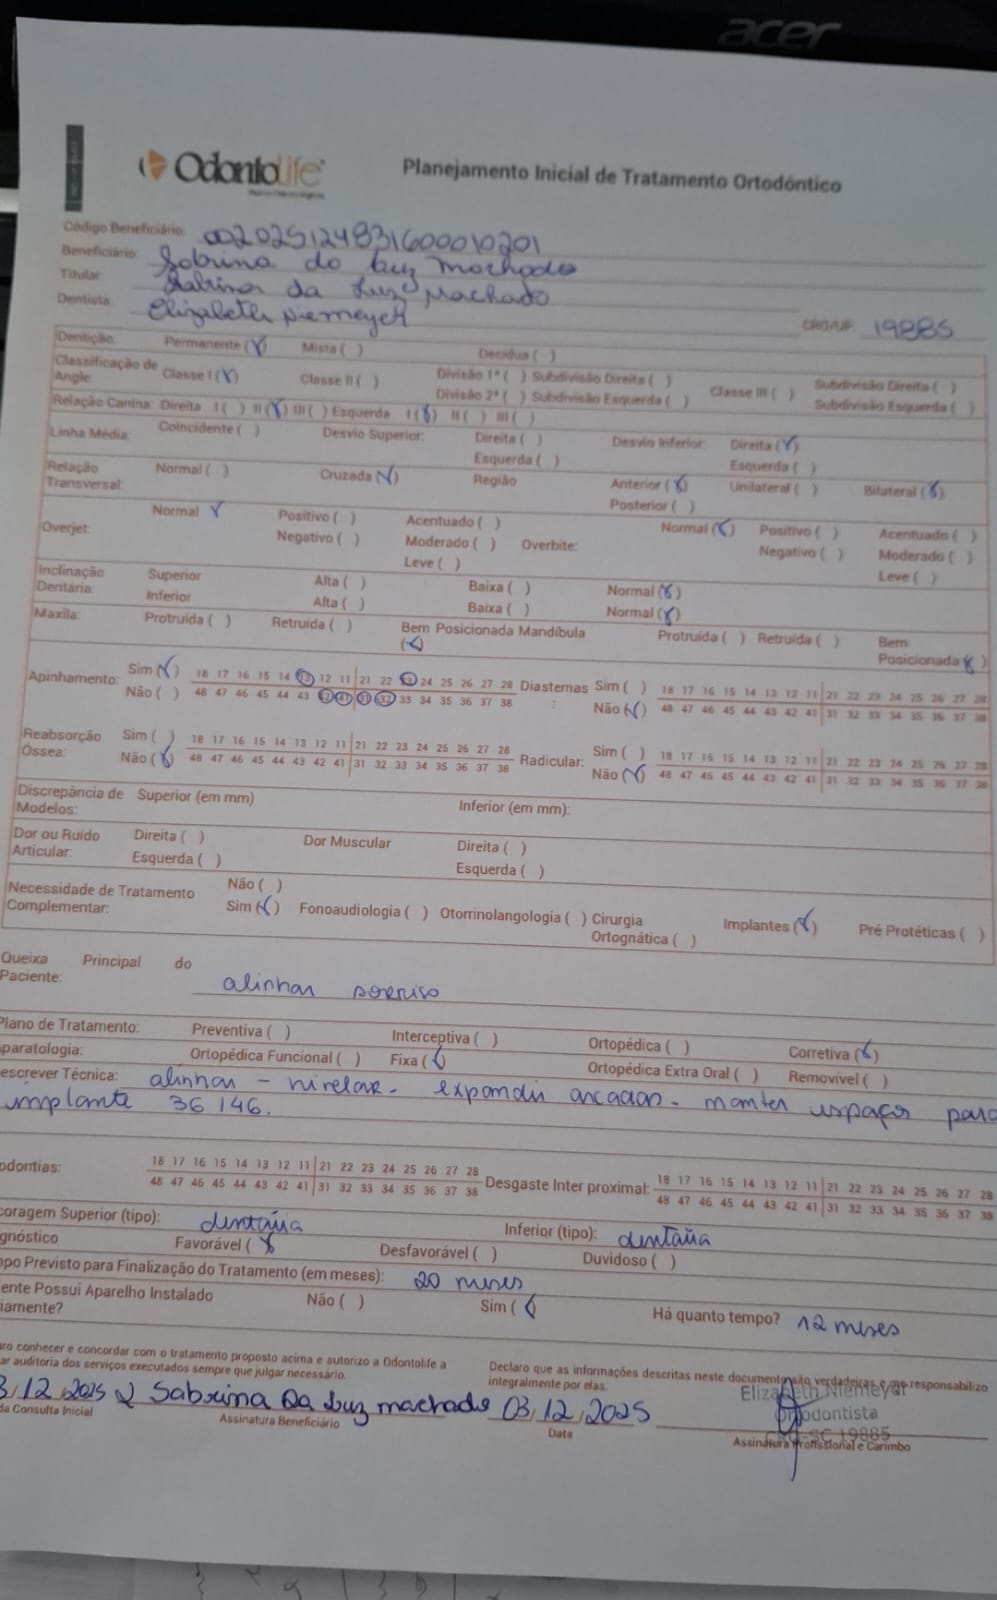 acer
OdontoLife
Planejamento Inicial de Tratamento Ortodôntico
Código Beneficiário: 002025124831600010201
Beneficiário: Sabrina da Luz Machado
Titular: Sabrina da Luz Machado
Dentista: Elizabeth Niemeyer CRO/UF: 19885
Dentição: Permanente (X) Mista ( ) Decídua ( )
Classificação de Angle: Classe I (X) Classe II ( ) Divisão 1ª ( ) Subdivisão Direita ( ) Classe III ( ) Subdivisão Direita ( )
Divisão 2ª ( ) Subdivisão Esquerda ( ) Subdivisão Esquerda ( )
Relação Canina: Direita I ( ) II (X) III ( ) Esquerda I (X) II ( ) III ( )
Linha Média: Coincidente ( ) Desvio Superior: Direita ( ) Desvio Inferior: Direita (X)
Esquerda ( ) Esquerda ( )
Relação Transversal: Normal ( ) Cruzada (X) Região Anterior (X) Unilateral ( ) Bilateral (X)
Posterior ( )
Overjet: Normal X Positivo ( ) Acentuado ( ) Overbite: Normal (X) Positivo ( ) Acentuado ( )
Negativo ( ) Moderado ( ) Negativo ( ) Moderado ( )
Leve ( ) Leve ( )
Inclinação Dentária: Superior Alta ( ) Baixa ( ) Normal (X)
Inferior Alta ( ) Baixa ( ) Normal (X)
Maxila: Protruída ( ) Retruída ( ) Bem Posicionada (X) Mandíbula Protruída ( ) Retruída ( ) Bem Posicionada X )
Apinhamento: Sim (X) 18 17 16 15 14 13 12 11 21 22 23 24 25 26 27 28 Diastemas : Sim ( ) 18 17 16 15 14 13 12 11 21 22 23 24 25 26 27 28
Não ( ) 48 47 46 45 44 43 42 41 31 32 33 34 35 36 37 38 Não (X) 48 47 46 45 44 43 42 41 31 32 33 34 35 36 37 38
Reabsorção Óssea: Sim ( ) 18 17 16 15 14 13 12 11 21 22 23 24 25 26 27 28 Radicular: Sim ( ) 18 17 16 15 14 13 12 11 21 22 23 24 25 26 27 28
Não (X) 48 47 46 45 44 43 42 41 31 32 33 34 35 36 37 38 Não (X) 48 47 46 45 44 43 42 41 31 32 33 34 35 36 37 38
Discrepância de Modelos: Superior (em mm) Inferior (em mm):
Dor ou Ruído Articular: Direita ( ) Dor Muscular Direita ( )
Esquerda ( ) Esquerda ( )
Necessidade de Tratamento Complementar: Não ( )
Sim (X) Fonoaudiologia ( ) Otorrinolangologia ( ) Cirurgia Ortognática ( ) Implantes (X) Pré Protéticas ( )
Queixa Principal do Paciente: alinhar sorriso
Plano de Tratamento: Preventiva ( ) Interceptiva ( ) Ortopédica ( ) Corretiva (X)
paratologia: Ortopédica Funcional ( ) Fixa (X) Ortopédica Extra Oral ( ) Removível ( )
escrever Técnica: alinhar - nivelar - expandir arcadas - manter espaços para
implante 36 / 46.
odontias: 18 17 16 15 14 13 12 11 21 22 23 24 25 26 27 28 Desgaste Inter proximal: 18 17 16 15 14 13 12 11 21 22 23 24 25 26 27 28
48 47 46 45 44 43 42 41 31 32 33 34 35 36 37 38 48 47 46 45 44 43 42 41 31 32 33 34 35 36 37 38
coragem Superior (tipo): dentária Inferior (tipo): dentária
gnóstico Favorável (X Desfavorável ( ) Duvidoso ( )
npo Previsto para Finalização do Tratamento (em meses): 20 meses
ente Possui Aparelho Instalado iamente? Não ( ) Sim (X Há quanto tempo? 12 meses
aro conhecer e concordar com o tratamento proposto acima e autorizo a Odontolife a
ar auditoria dos serviços executados sempre que julgar necessário.
Declaro que as informações descritas neste documento são verdadeiras e me responsabilizo
integralmente por elas.
3/12/2025 Sabrina Da Luz machado 03/12/2025
Elizabeth Niemeyer
Ortodontista
CRO-SC 19885
da Consulta Inicial Assinatura Beneficiário Data Assinatura Profissional e Carimbo